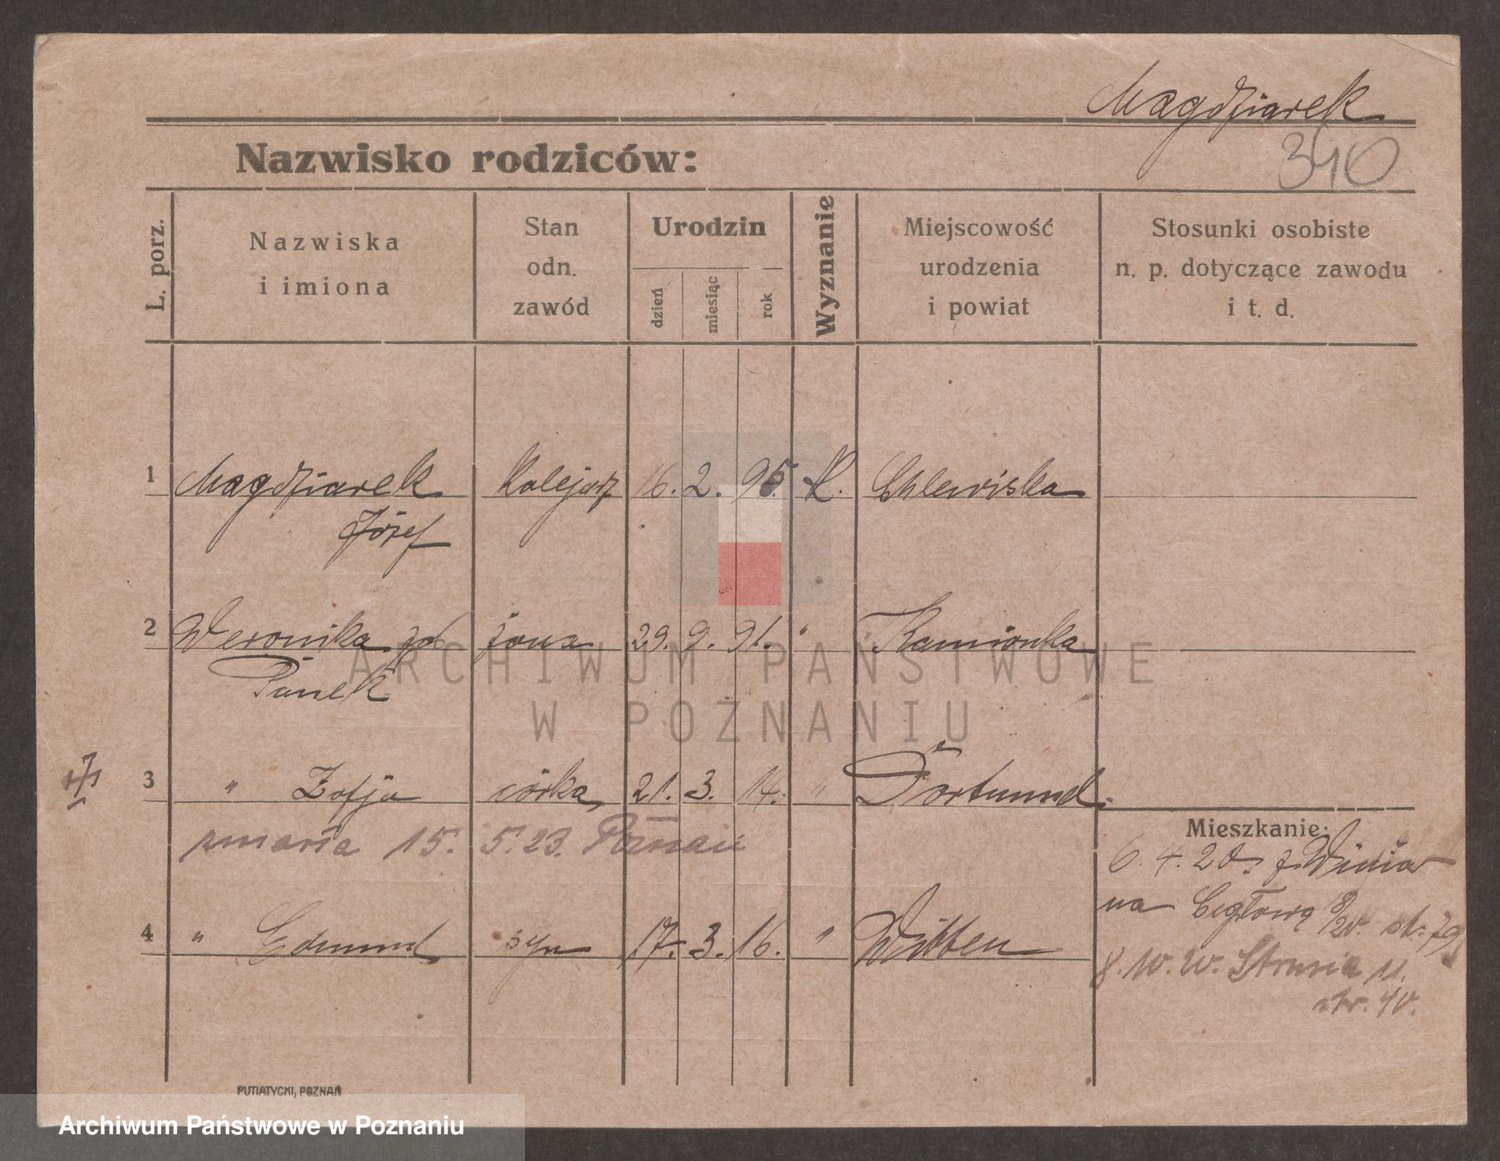 Magdziarek
340
Nazwisko rodziców:
L. porz.
Nazwiska
i imiona
Stan
odn.
zawód
Urodzin
dzień
miesiąc
rok
Wyznanie
Miejscowość
urodzenia
i powiat
Stosunki osobiste
n. p. dotyczące zawodu
i t. d.
1 Magdziarek kolejarz 16. 2. 95. K. Chlewiska
Józef
2 Weronika żona 29. 9. 91. " Kamionka
Panek
3 " Zofja córka 21. 3. 14. " Dortmund.
zmarła 15. 5. 23. Poznań
Mieszkanie:
6. 4. 20. z Winiar
na Cegłową 8/20. str. 79
4 " Edmund syn 17. 3. 16. " Witten
Strusia 11.
str. 40.
PUTIATYCKI, POZNAŃ
ARCHIWUM PAŃSTWOWE
W POZNANIU
Archiwum Państwowe w Poznaniu